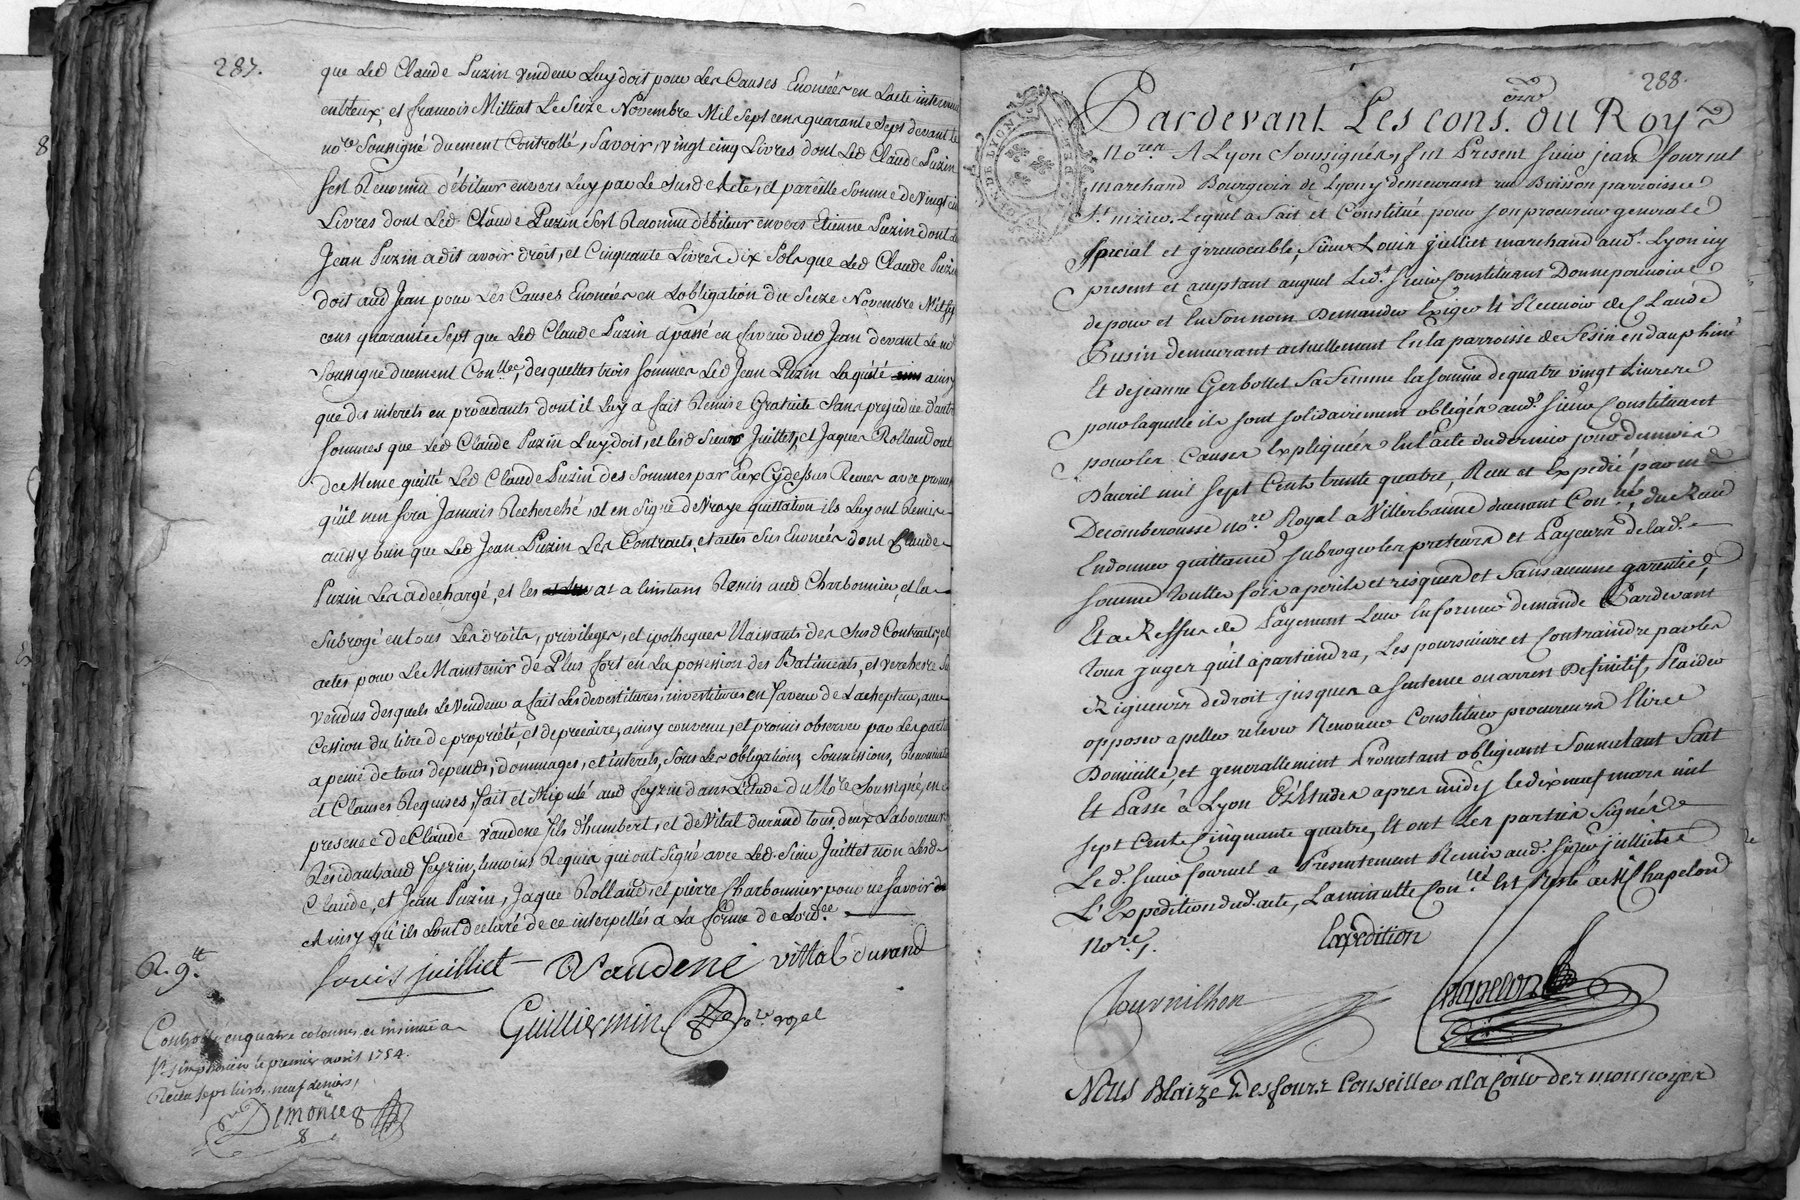 287.
que Led Claude Puzin vendeur Luy doit pour Les Causes Enoncées en Lacte intervenu
entr'eux, et francois Milliat Le Seize Novembre Mil Sept cens quarante Sept devant le
nore Soussigné duement Controllé, Savoir, vingt cinq Livres dont Led Claude Puzin
sest Reconnu débiteur envers Luy par Le Susd Acte, et pareille Somme de Vingt cinq
Livres dont Led Claude Puzin sest Reconnu débiteur envers Etienne Puzin dont led
Jean Puzin a dit avoir droit, et Cinquante Livres dix Sols que Led Claude Puzin
doit aud Jean pour Les Causes Enoncées en Lobligation du Seize Novembre Mil Sept
cens quarante Sept que Led Claude Puzin a passé en faveur dud Jean devant Le nore
Soussigné duement Conllée, desquelles trois sommes Led Jean Puzin La quitté ainsy
que des interets en procedants dont il Luy a fait Remise Gratuite Sans prejudice dautres
sommes que Led Claude Puzin Luy doit, et lesd Sieurs Juillet, et Jaques Rolland ont
de Meme quitté Led Claude Puzin des Sommes par Eux Cy dessus Reçues avec promesse
qu'il n'en sera Jamais Recherché, et en Signe de Vraye quittation ils Luy ont Remis
aussy bien que Led Jean Puzin Les Contracts, et actes Sus Enoncées dont Claude
Puzin Les a dechargé, et les a a linstant Remis aud Charbonnier, et la
Subrogé en tous Les droits, privileges, et ipotheques Naissants des Susd Contracts, et
actes pour Le Maintenir de Plus fort en La possession des Batiments, et vercheres Sus
vendus desquels Le Vendeur a fait Les devestitures, investitures en faveur de Lachepteur, avec
Cession du titre de propriété, et de precaire, ainsy convenu, et promis observer par Les parties
a peine de tous depends, dommages, et interets, Sous Les obligations, Soumissions, Renonciations
et Clauses Requises, fait et Stipulé aud feyzin dans L'Etude du Nore Soussigné, en
presence de Claude Vaudene fils d'humbert, et de Vital durand tous deux Laboureurs
Residants aud feyzin, temoins Requis qui ont Signé avec Led. Sieur Juillet non Lesd
Claude, et Jean Puzin, Jaque Rolland, et pierre Charbonnier pour ne Savoir
Ainsy qu'ils Lont declaré de ce interpellés a La forme de Lordce.
R. 9tt
Louis Juilliet Vaudene vittal durand
Guilliermin nore royal
Controllé en quatre colonnes et insinué a
St simphorien le premier avril 1754.
Reçu sept livres neuf deniers,
Demonceo
288.
Pardevant Les cons. du Roy
Nores A Lyon Soussignés, fut Present sieur jean fournel
marchand Bourgeois de Lyon y demeurant rue Buisson parroisse
St. nizier. Lequel a fait et Constitué pour son procureur general
special et irrevocable, sieur Louis juillet marchand aud. Lyon icy
present et acceptant auquel Led. sieur Constituant Donne pouvoir
de pour et En son nom Demander Exiger et Recevoir de Claude
Pusin demeurant actuellement En la parroisse de fesin en dauphiné
Et de jeanne Gerbollet sa femme la somme de quatre vingt Livres
pour laquelle ils sont solidairement obligés aud. sieur Constituant
pour les Causes Expliquées En l'acte du dernier jour du mois
D'avril mil sept Cents trente quatre, Reçu et Expedié par me
Decomberousse nore Royal a Villerbanne duement Conllé, du Reçu
En donner quittance subroger les preteurs et Payeurs de lad.
somme touttes fois a perils et risques et sans aucune garentie,
Et a Reffus de Payement Leur En former demande Pardevant
tous juges qu'il apartiendra, Les poursuivre et Contraindre par les
Rigueurs de droit jusques a sentence ou arrest Definitif, Plaider
opposer apeller relever Renoncer Constituer procureurs Elire
Domicille, et generallement Prometant obligeant Soumetant Fait
Et Passé à Lyon Ez Etudes apres midy le dix neuf mars mil
sept Cents Cinquante quatre, Et ont Les parties Signés
Le d. sieur fournel a Presentement Remis aud. sieur juilliet
L'Expedition dud. acte, La minutte Conllée Est Resté a Me Chapelon
nore.
Expedition
Tournilhon
Chapelon
Nous Blaize Desfours Conseiller a la Cour des monnoyes